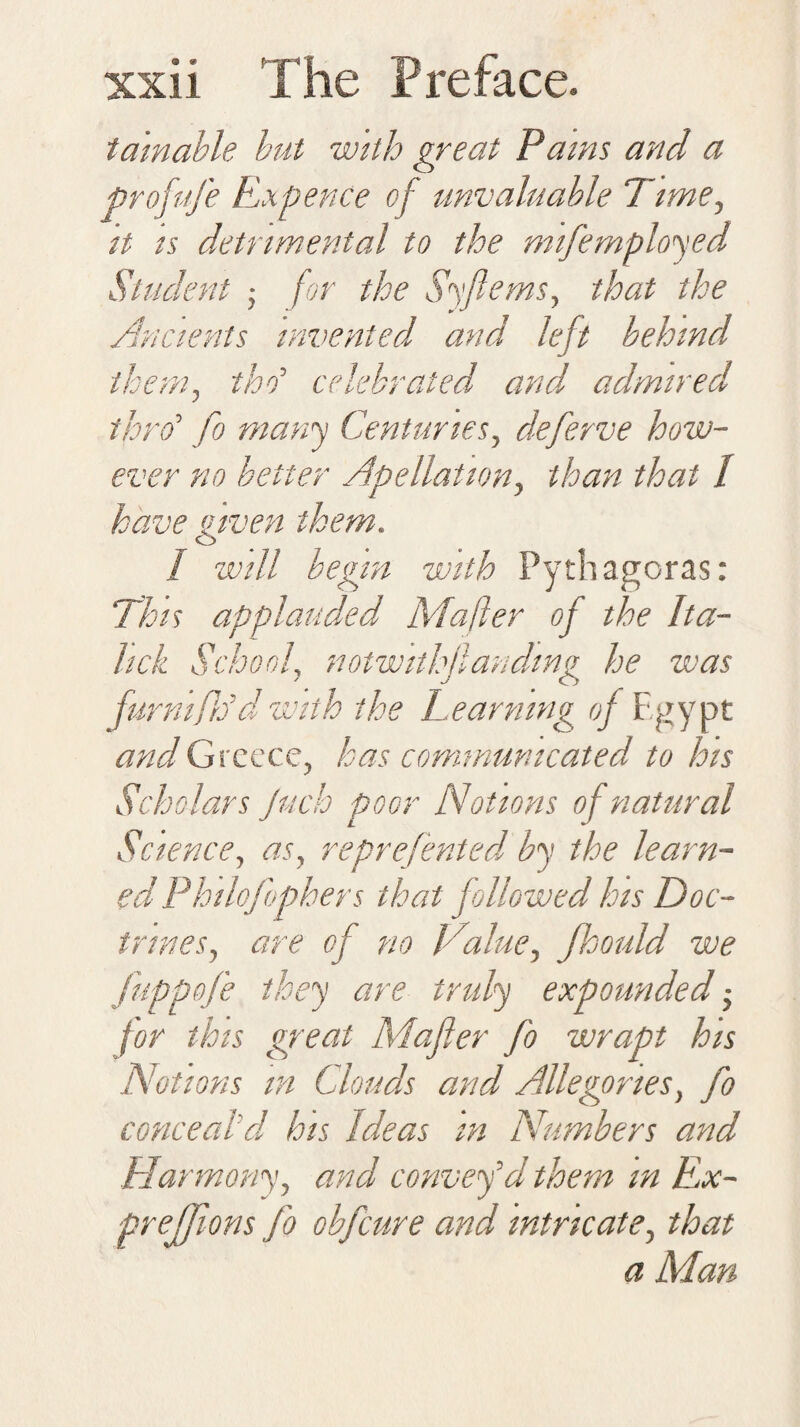 xxii The Preface.
tainable but with great Pains and a
profuſe Expence of unvaluable Time,
it is detrimental to the miſemployed
Student ; for the Syſtems, that the
Ancients invented and left behind
them, tho' celebrated and admired
thro' ſo many Centuries, deſerve how-
ever no better Apellation, than that I
have given them.
I will begin with Pythagoras:
This applauded Maſter of the Ita-
lick School, notwithſtanding he was
furniſh'd with the Learning of Egypt
and Greece, has communicated to his
Scholars ſuch poor Notions of natural
Science, as, repreſented by the learn-
ed Philoſophers that followed his Doc-
trines, are of no Value, ſhould we
ſuppoſe they are truly expounded ;
for this great Maſter ſo wrapt his
Notions in Clouds and Allegories, ſo
conceal'd his Ideas in Numbers and
Harmony, and convey'd them in Ex-
preſſions ſo obſcure and intricate, that
a Man